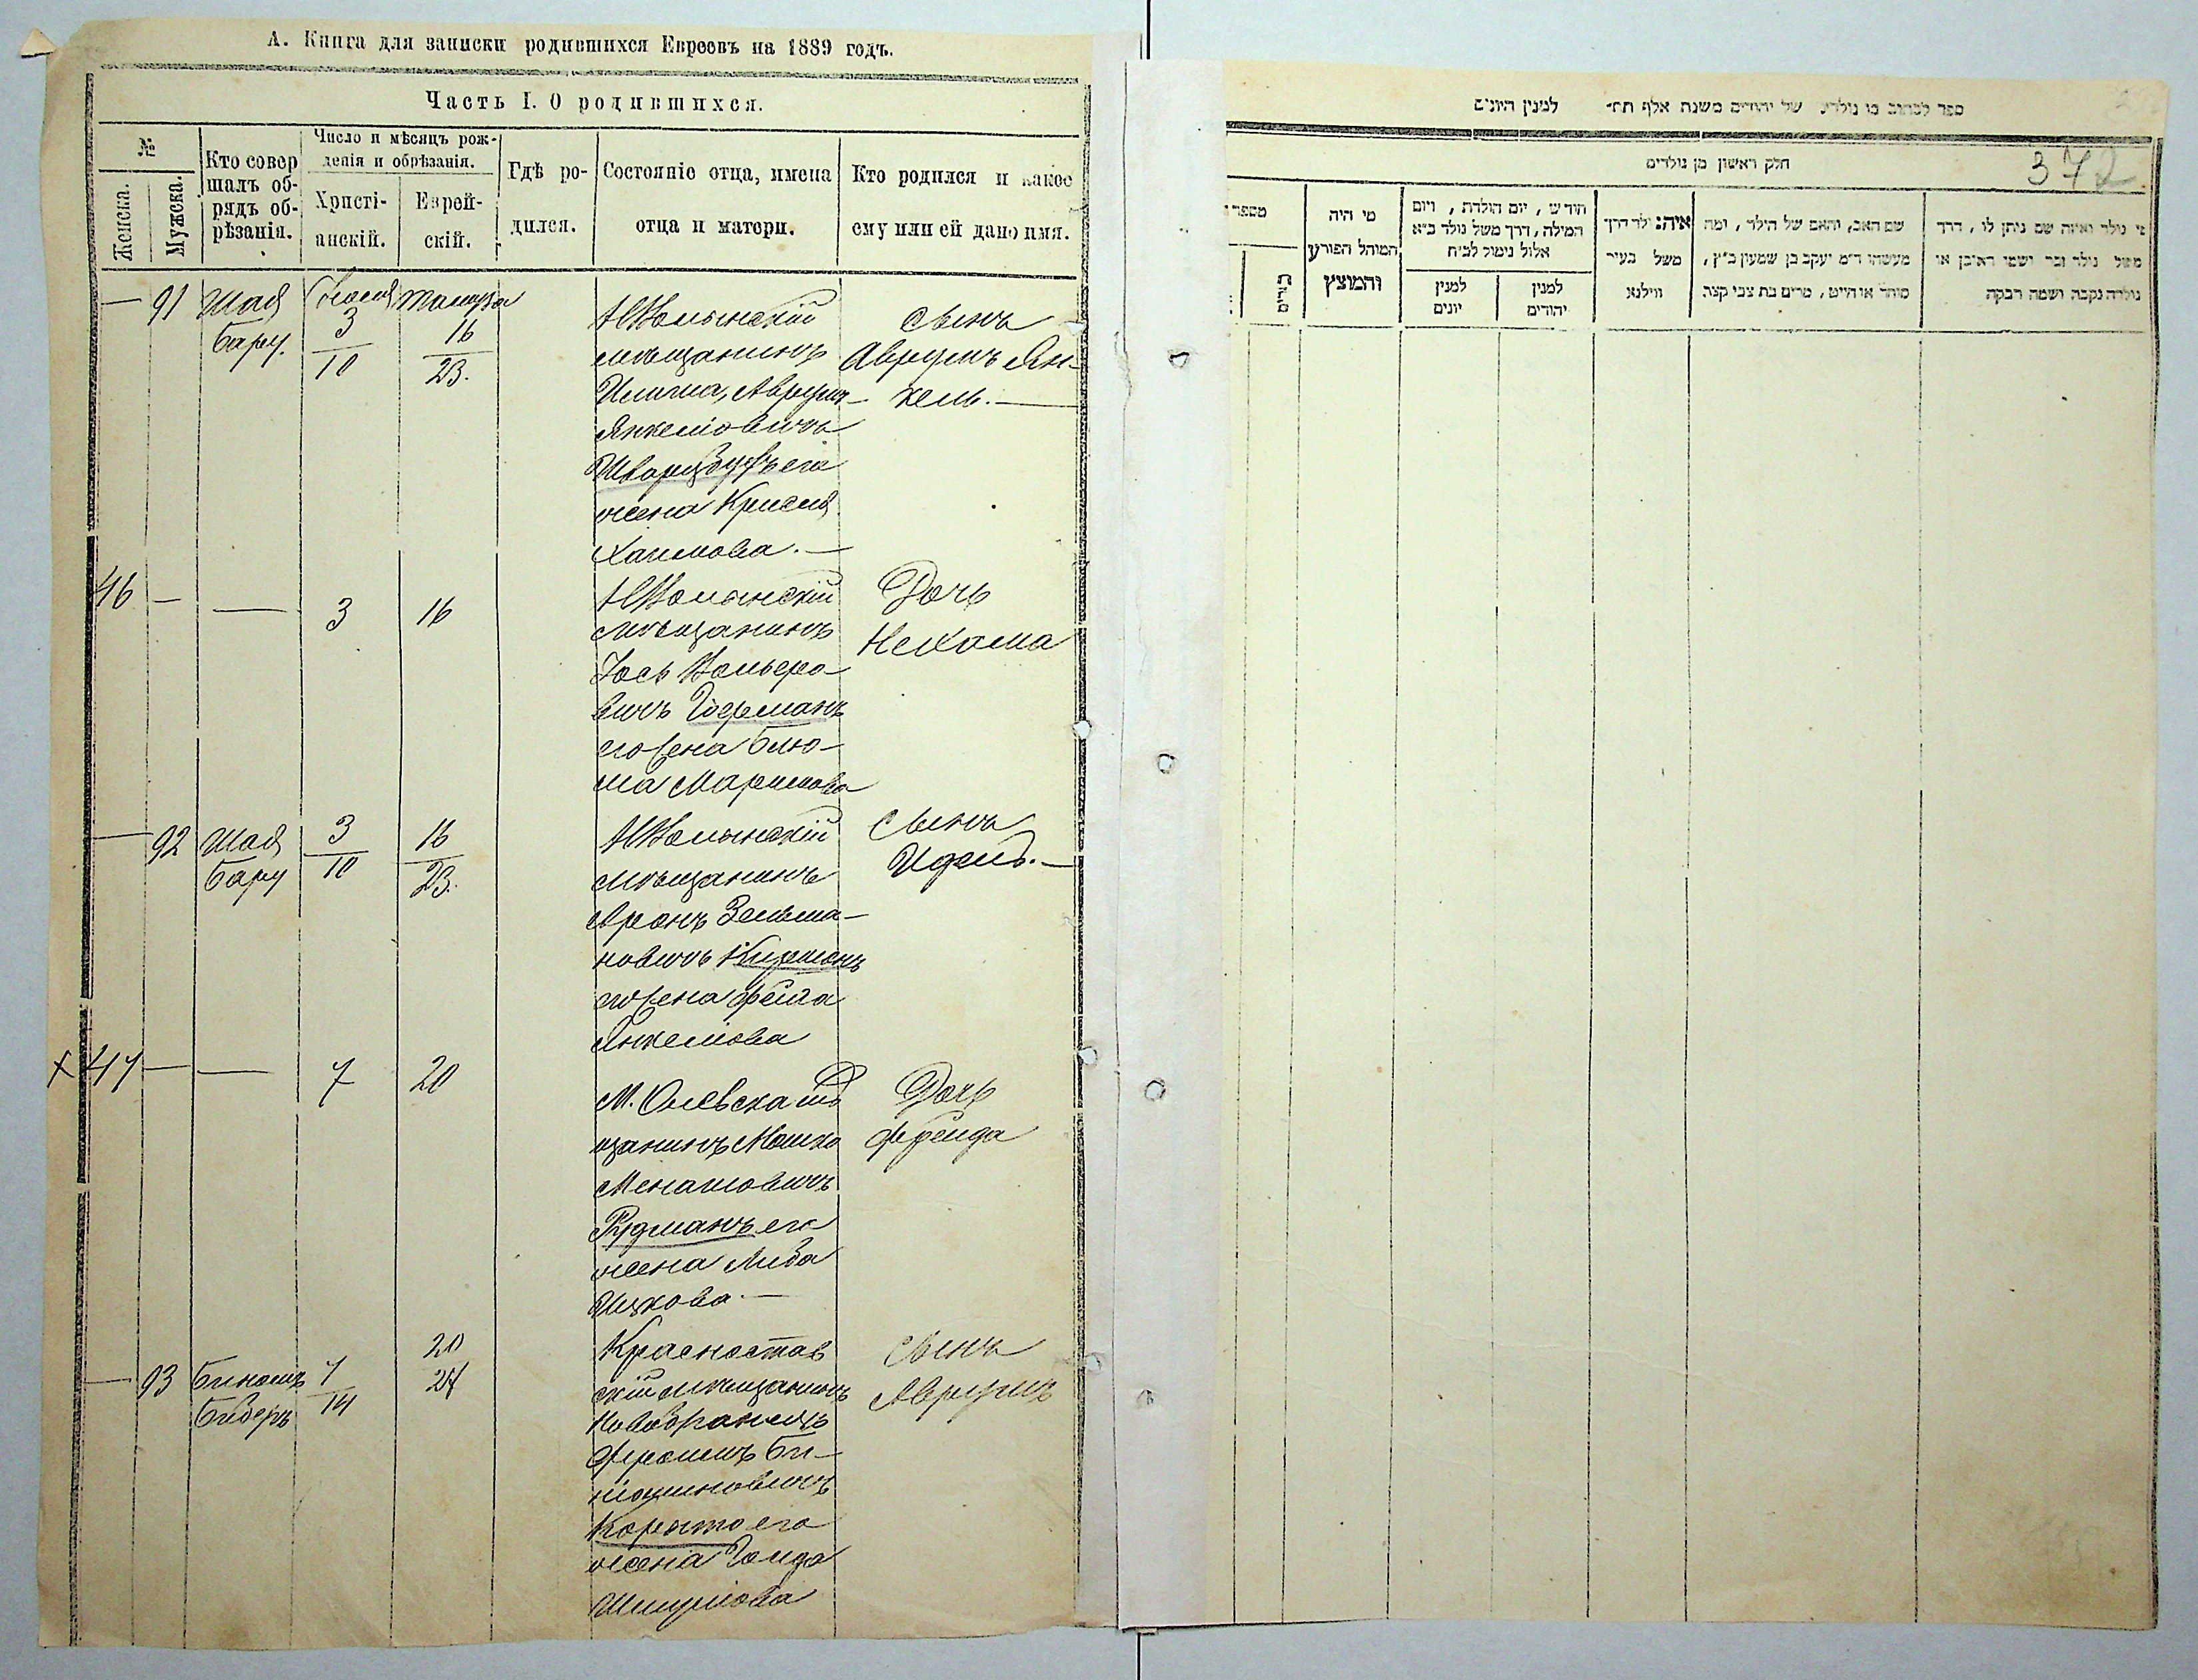 А. Книга для записки родившихся Евреевъ на 1889 годъ.
Часть I. О родившихся.
№
Женска.
Мужска.
Кто совер
шалъ об-
рядъ об-
рѣзанія.
Число и мѣсяцъ рож-
денія и обрѣзанія.
Христі-
анскій.
Еврей-
скій.
Гдѣ ро-
дился.
Состояніе отца, имена
отца и матери.
Кто родился и какое
ему или ей дано имя.
— 91 Шая
Бару.
Іюня
3
10
Тамуза
16
23.
НВолынскій
мѣщанинъ
Аврумъ
Янкелiовичъ
Шварцбухъ его
жена Крисля
Хаимова. —
сынъ
Аврумъ Ян-
кель. —
46 — — 3 16
НВолынскій
мѣщанинъ
Іось Вольфо-
вичъ его жена Блю-
ма
Дочь
Нехама
— 92 Шая
Бару
3
10
16
23.
НВолынскій
мѣщанинъ
Аронъ Зельма-
новичъ
его жена Фейга
Янкелiова
сынъ
Идель. —
х 47 — — 7 20
М. Олевска мѣ
щанинъ Мошко
Менашовичъ
Рудманъ его
жена Либа
Ицкова. —
Дочь
Фрейда
— 93 Биномъ
Биберъ
7
14
20
27
Красностав
скій мѣщанинъ
Новобранецъ
Фроимъ Би-
ніоминовичъ
Корыто его
жена Голда
Шмулiова
сынъ
Аврумъ
של יהודים משנת אלף תת״ למנין היונים
חלק ראשון מן נולדים
372
מספר
מי היה
המוהל הפורע
והמוצץ
חודש , יום הולדת , ויום
המילה, דרך משל נולד כ״א
אלול נימול לכ״ח
למנין
יונים
למנין
יהודים
איה: ילד דרך
משל בעיר
ווילנא
שם האב, והאם של הילד , ומה
מעשהו ד״מ יעקב בן שמעון כ״ץ,
סוחר או חייט , מרים בת צבי קצר.
מי נולד ואיזה שם ניתן לו , דרך
משל נולד זכר ושמו ראובן או
נולדה נקבה ושמה רבקה